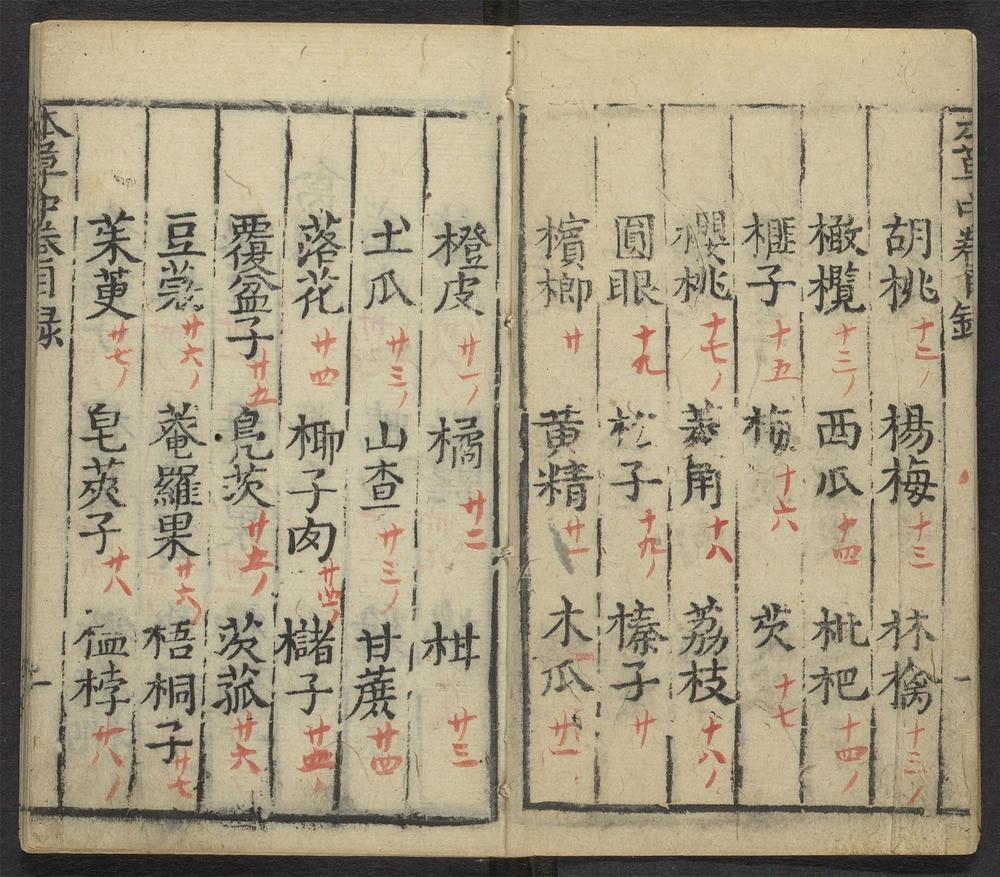 本草中卷目録
胡桃 十二ノ 楊梅 十三 林檎 十三ノ
橄欖 十三ノ 西瓜 十四 枇杷 十四ノ
榧子 十五 梅 十六 茨 十七
櫻桃 十七ノ 菱角 十八 荔枝 十八ノ
圓眼 十九 松子 十九ノ 榛子 廿
檳榔 廿 黄精 廿一 木瓜 廿一
橙皮 廿一ノ 橘 廿二 柑 廿三
土瓜 廿三ノ 山查 廿三ノ 甘蔗 廿四
落花 廿四 椰子肉 廿四ノ 櫧子
覆盆子 廿五 鳧茨 廿五ノ 茨菰 廿六
豆蒄 廿六ノ 菴羅果 廿六ノ 梧桐子 廿七
茱萸 廿七ノ 皂莢子 廿八 榅桲 廿八ノ
本草中卷目録 一